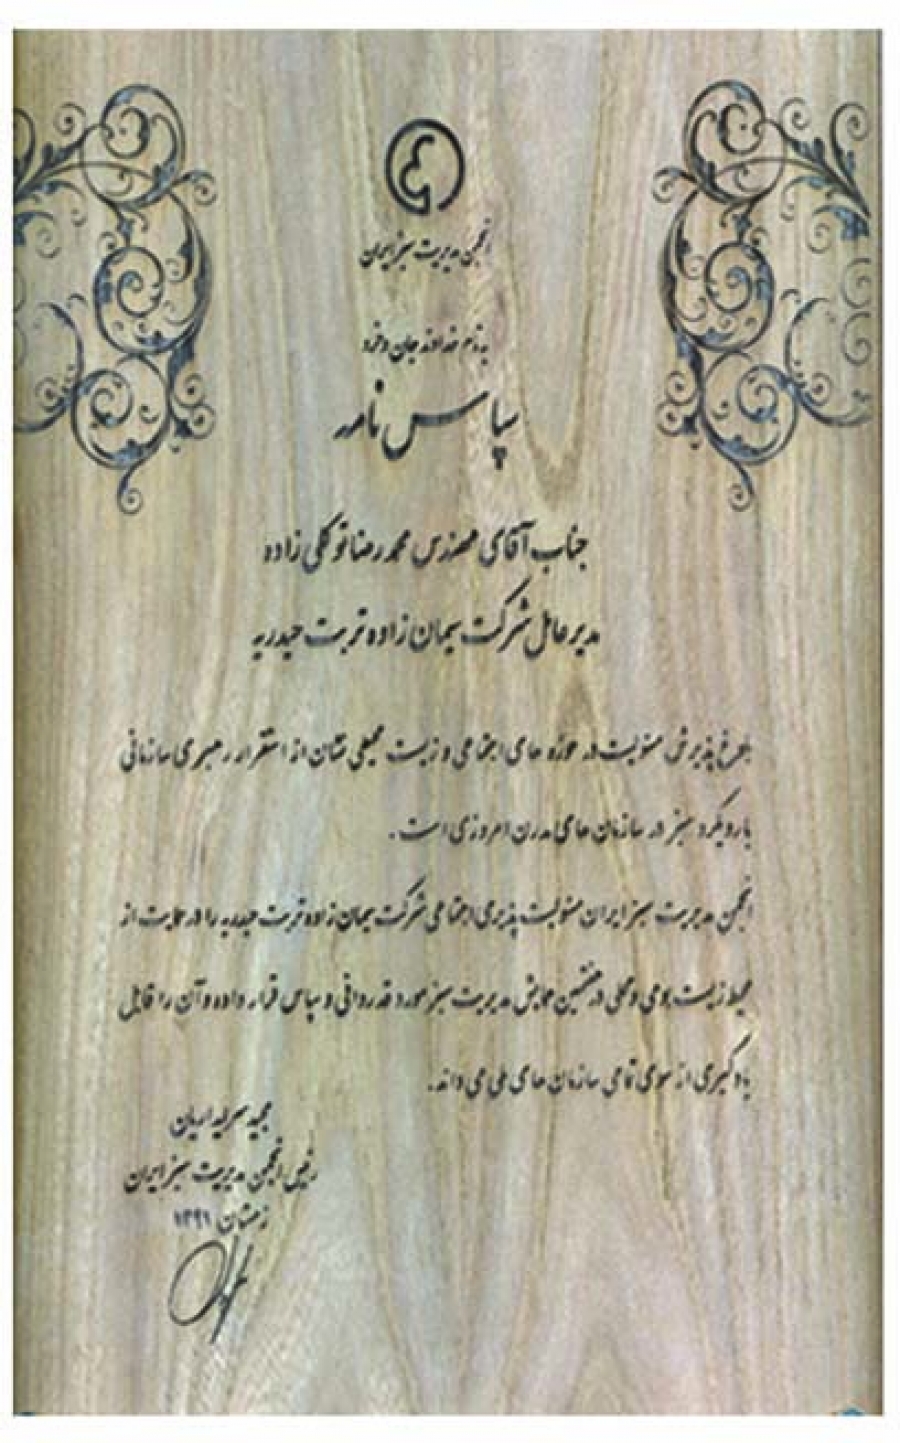 انجمن مدیریت سبز ایران
به نام خداوند جان و خرد
سپاس نامه
جناب آقای مهندس محمد رضا توکلی زاده
مدیر عامل شرکت سیمان زاده تربت حیدریه
پذیرش مسئولیت در حوزه های اجتماعی و زیست محیطی نشان از استقرار رهبری سازمانی
با رویکرد سبز در سازمان های مدرن امروزی است.
انجمن مدیریت سبز ایران مسئولیت پذیری اجتماعی شرکت سیمان زاده تربت حیدریه را در حمایت از
محیط زیست بومی و محلی در همایش مدیریت سبز مورد قدردانی و سپاس قرار داده و آن را قابل
یادگیری از سوی تمامی سازمان های ملی می داند.
مجید سرمایه داریان
رئیس انجمن مدیریت سبز ایران
زمستان ۱۳۹۱